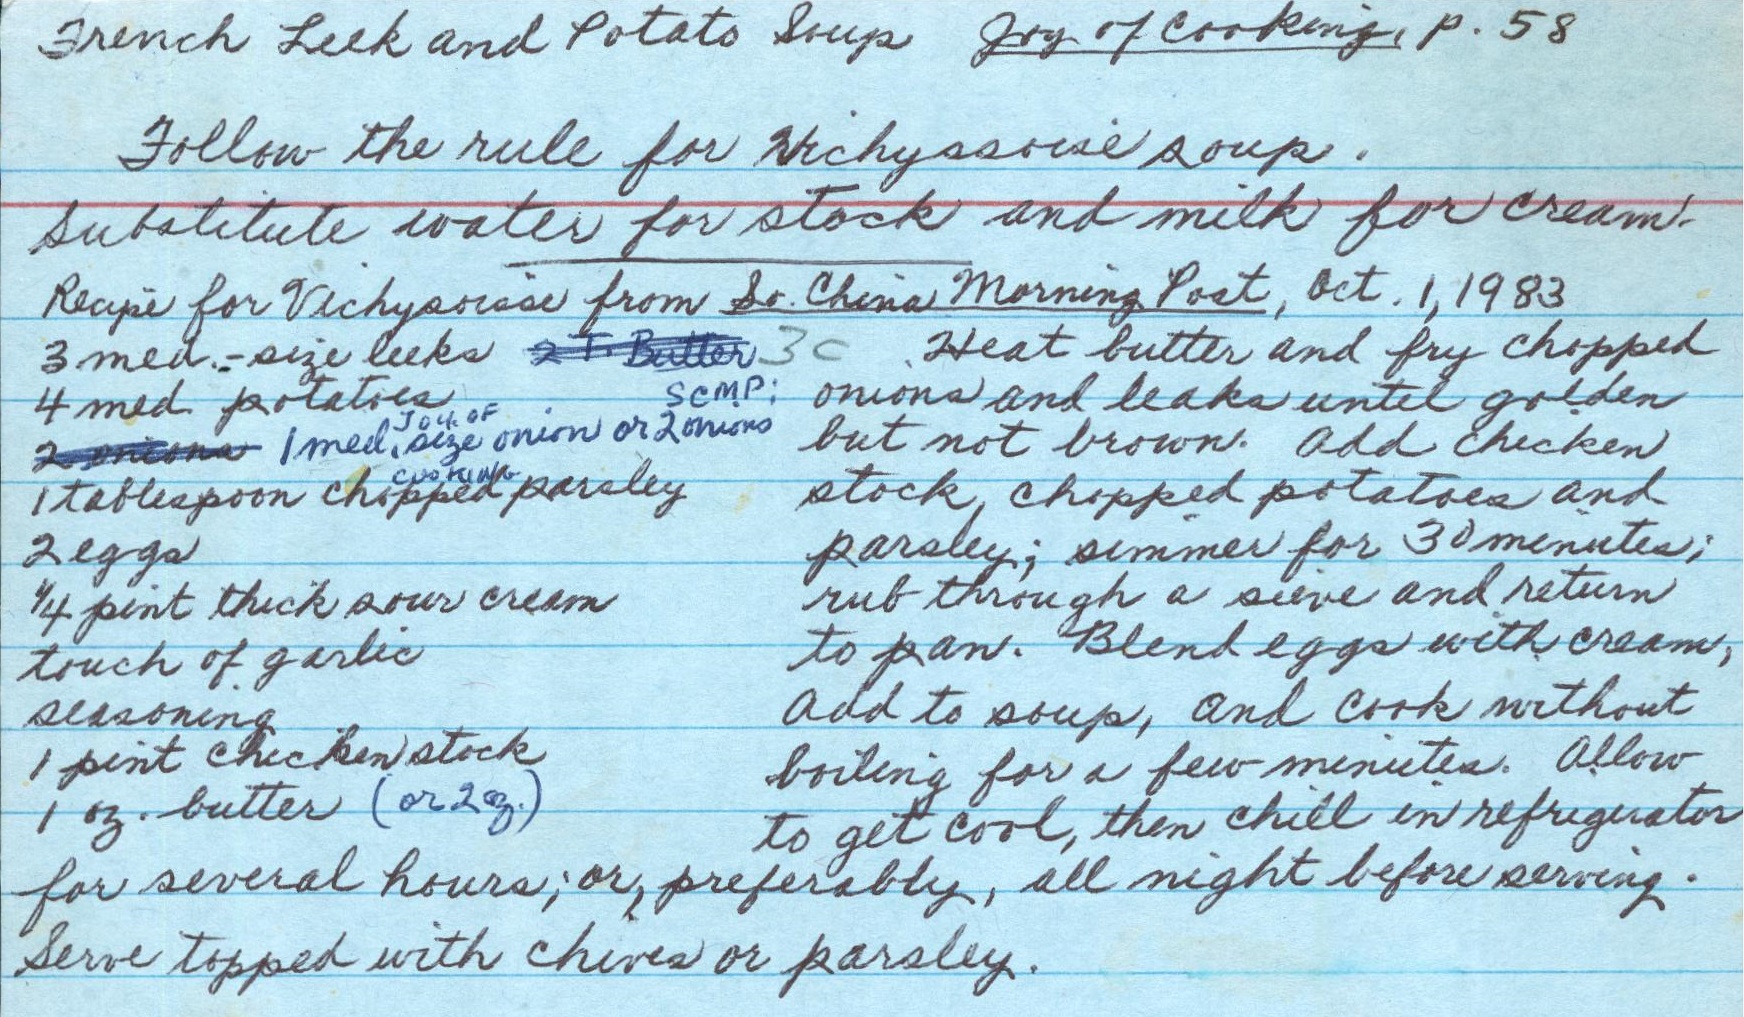 French Leek and Potato Soup Joy of Cooking, p. 58
Follow the rule for Vichyssoise soup.
Substitute water for stock and milk for cream.
Recipe for Vichysoisse from So. China Morning Post, Oct. 1, 1983
3 med.-size leeks 2 T. Butter 3c
4 med. potatoes
2 onions 1 med. size onion or 2 onions
Joy of
Cooking
SCMP:
1 tablespoon chopped parsley
2 eggs
1/4 pint thick sour cream
touch of garlic
seasoning
1 pint chicken stock
1 oz. butter (or 2 oz.)
Heat butter and fry chopped
onions and leaks until golden
but not brown. Add chicken
stock, chopped potatoes and
parsley; simmer for 30 minutes;
rub through a sieve and return
to pan. Blend eggs with cream,
add to soup, and cook without
boiling for a few minutes. Allow
to get cool, then chill in refrigerator
for several hours; or, preferably, all night before serving.
Serve topped with chives or parsley.